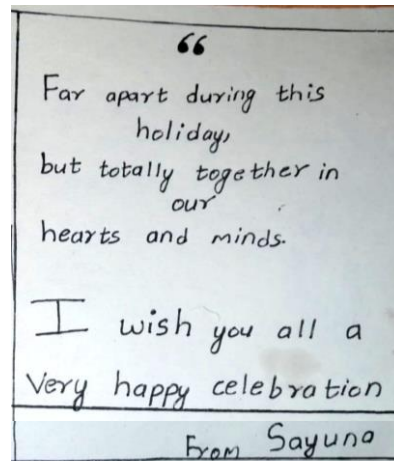 “
Far apart during this
holiday,
but totally together in
our
hearts and minds.
I wish you all a
Very happy celebration
From Sayuna